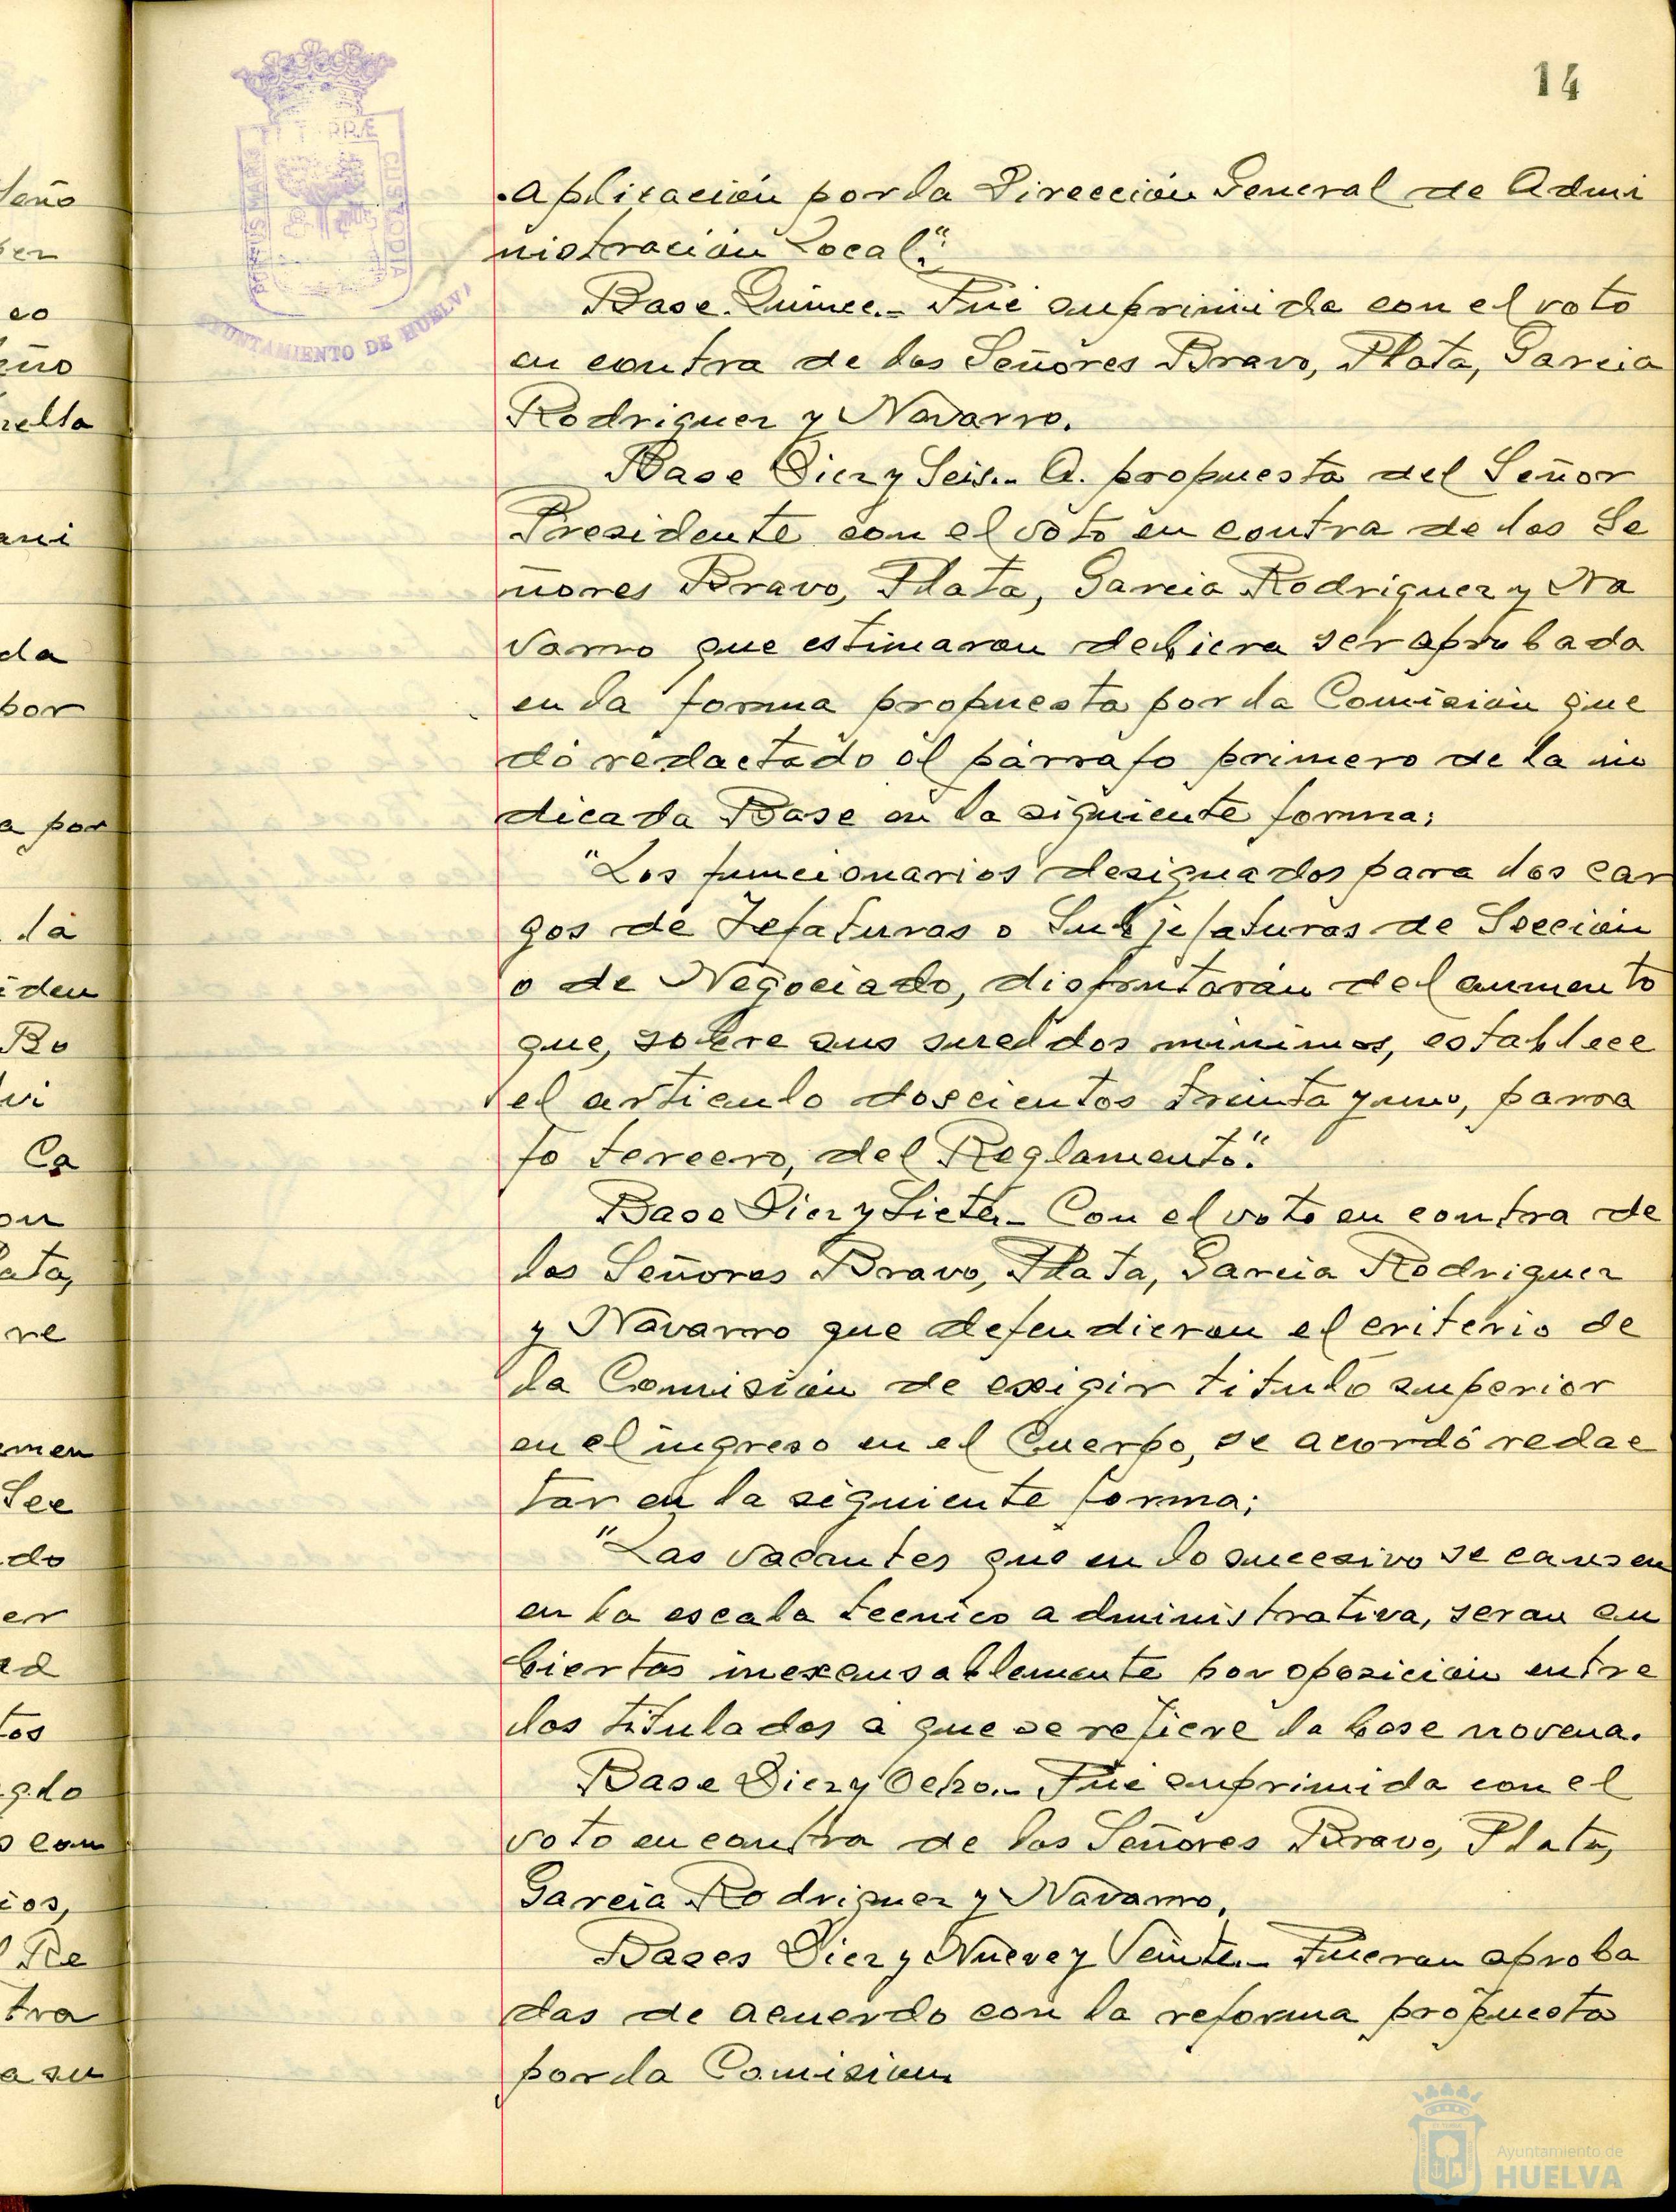 14
PORTUS MARIS ET TERRÆ CUSTODIA
AYUNTAMIENTO DE HUELVA
aplicación por la Dirección General de Admi
nistración Local".
Base Quince.- Fué suprimida con el voto
en contra de los Señores Bravo, Plata, Garcia
Rodriguez y Navarro.
Base Diez y Seis.- A propuesta del Señor
Presidente con el voto en contra de los Se
ñores Bravo, Plata, Garcia Rodriguez y Na
varro que estimaron debiera ser aprobada
en la forma propuesta por la Comisión que
dó redactado el párrafo primero de la in
dicada Base en la siguiente forma:
"Los funcionarios designados para los car
gos de Jefaturas o Subjefaturas de Sección
o de Negociado, disfrutarán del aumento
que, sobre sus sueldos minimos, establece
el articulo doscientos treinta y uno, parra
fo tercero, del Reglamento".
Base Diez y Siete.- Con el voto en contra de
los Señores Bravo, Plata, Garcia Rodriguez
y Navarro que defendieron el criterio de
la Comisión de exigir titulo superior
en el ingreso en el Cuerpo, se acordó redac
tar en la siguiente forma:
"Las vacantes que en lo sucesivo se causen
en la escala tecnico administrativa, seran cu
biertas inexcusablemente por oposición entre
los titulados a que se refiere la base novena.
Base Diez y Ocho.- Fué suprimida con el
voto en contra de los Señores Bravo, Plata,
Garcia Rodriguez y Navarro.
Bases Diez y Nueve y Veinte.- Fueron aproba
das de acuerdo con la reforma propuesta
por la Comision
Ayuntamiento de
HUELVA